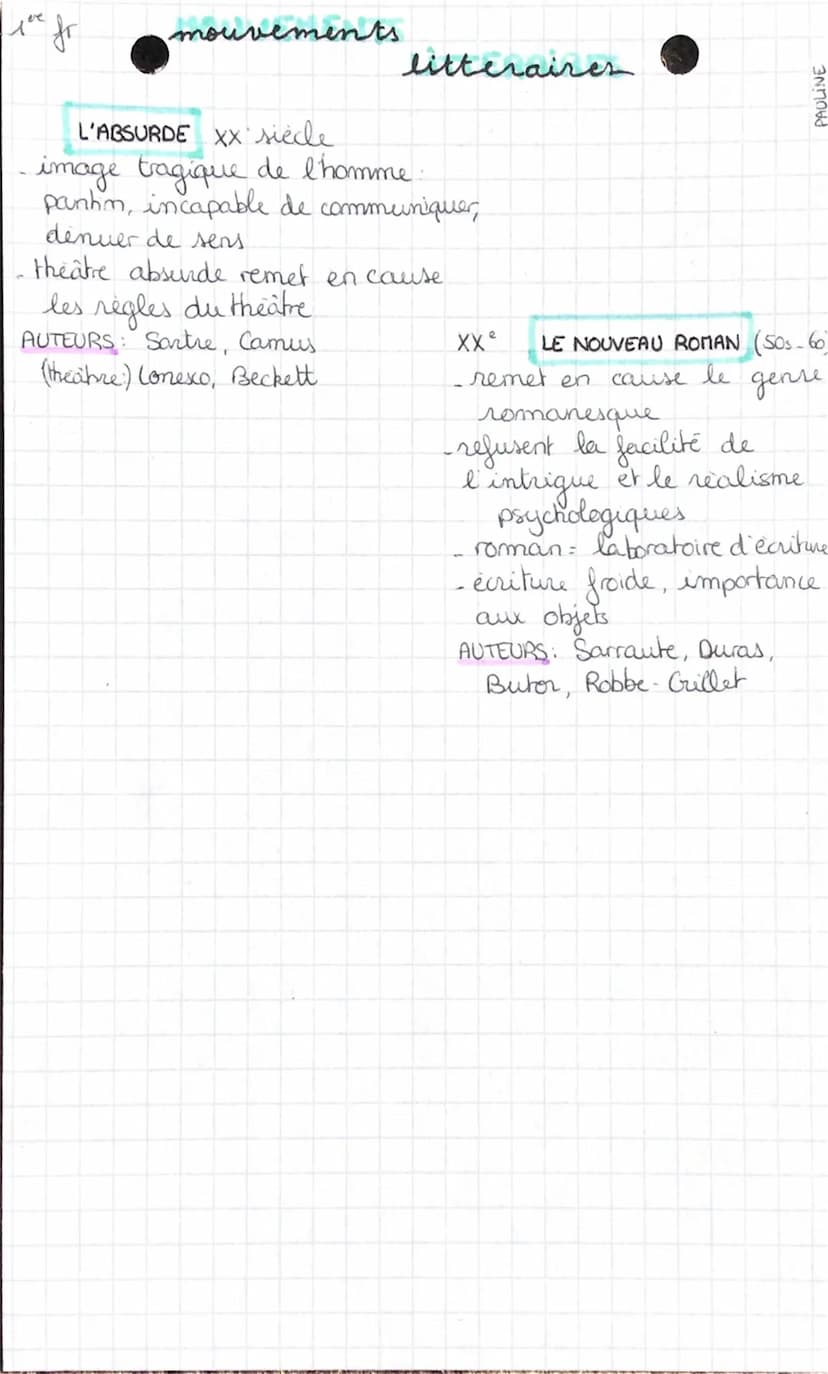 1ère fr
mouvements
littéraires
PAULINE
L'ABSURDE XXe siècle
- image tragique de l'homme :
pantin, incapable de communiquer,
dénuer de sens
- théâtre absurde remet en cause
les règles du théâtre
AUTEURS : Sartre, Camus
(théâtre:) Ionexo, Beckett
XXe LE NOUVEAU ROMAN (50s-60
- remet en cause le genre
romanesque
- refusent la facilité de
l'intrigue et le réalisme
psychologiques
- roman = laboratoire d'écriture
- écriture froide, importance
aux objets
AUTEURS : Sarraute, Duras,
Butor, Robbe-Grillet